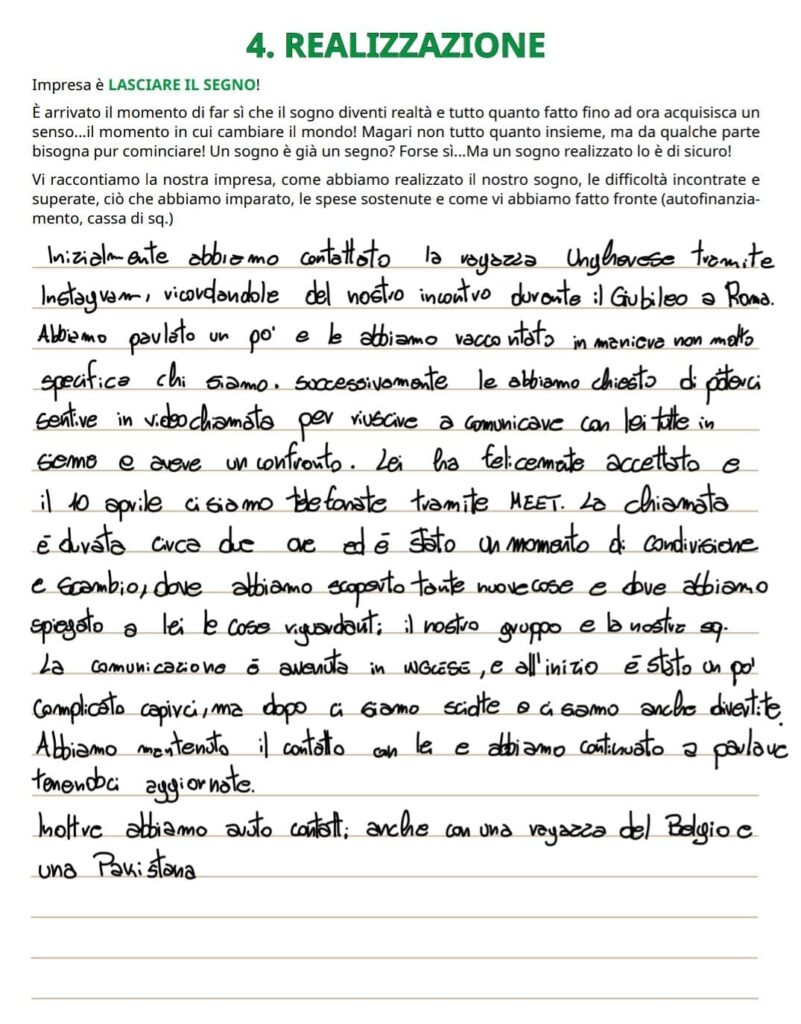 4. REALIZZAZIONE
Impresa è LASCIARE IL SEGNO!
È arrivato il momento di far sì che il sogno diventi realtà e tutto quanto fatto fino ad ora acquisisca un
senso...il momento in cui cambiare il mondo! Magari non tutto quanto insieme, ma da qualche parte
bisogna pur cominciare! Un sogno è già un segno? Forse sì...Ma un sogno realizzato lo è di sicuro!
Vi raccontiamo la nostra impresa, come abbiamo realizzato il nostro sogno, le difficoltà incontrate e
superate, ciò che abbiamo imparato, le spese sostenute e come vi abbiamo fatto fronte (autofinanzia-
mento, cassa di sq.)
Inizialmente abbiamo contattato la ragazza Ungherese tramite
Instagram, ricordandole del nostro incontro durante il Giubileo a Roma.
Abbiamo parlato un po' e le abbiamo raccontato in maniera non molto
specifica chi siamo. successivamente le abbiamo chiesto di poterci
sentire in videochiamata per riuscire a comunicare con lei tutte in
sieme e avere un confronto. Lei ha felicemnate accettato e
il 10 aprile ci siamo telefonate tramite MEET. La chiamata
è durata circa due ore ed è stato un momento di condivisione
e scambio, dove abbiamo scoperto tante nuove cose e dove abbiamo
spiegato a lei le cose riguardanti il nostro gruppo e la nostra sq.
La comunicazione è avvenuta in INGLESE, e all'inizio è stato un po'
complicato capirci, ma dopo ci siamo sciolte e ci siamo anche divertite.
Abbiamo mantenuto il contatto con lei e abbiamo continuato a parlare
tenendoci aggiornate.
Inoltre abbiamo avuto contatti anche con una ragazza del Belgio e
una Pakistana